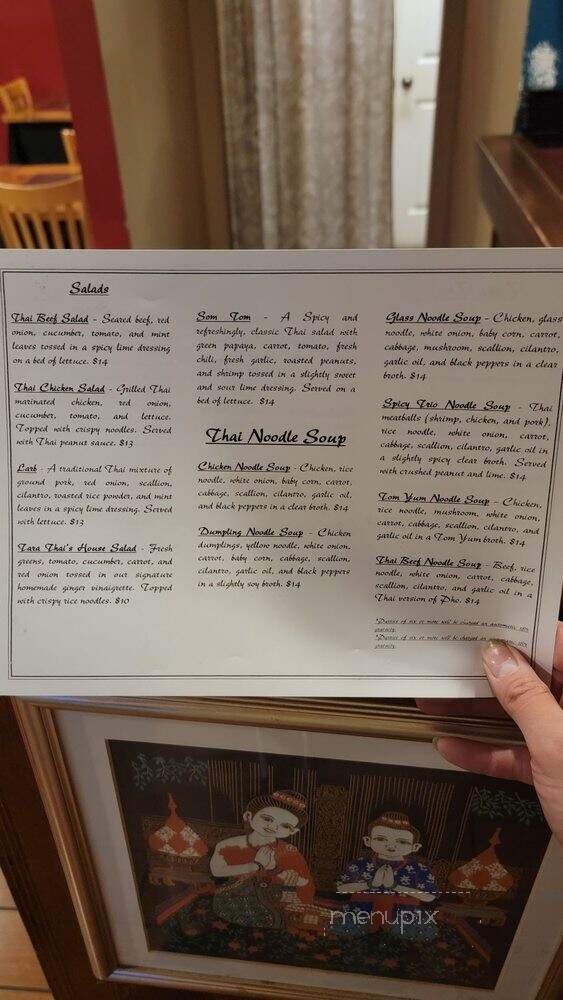 Salads
Thai Beef Salad - Seared beef, red
onion, cucumber, tomato, and mint
leaves tossed in a spicy lime dressing
on a bed of lettuce. $14
Thai Chicken Salad - Grilled Thai
marinated chicken, red onion,
cucumber, tomato, and lettuce.
Topped with crispy noodles. Served
with Thai peanut sauce. $13
Larb - A traditional Thai mixture of
ground pork, red onion, scallion,
cilantro, roasted rice powder, and mint
leaves in a spicy lime dressing. Served
with lettuce. $13
Tara Thai's House Salad - Fresh
greens, tomato, cucumber, carrot, and
red onion tossed in our signature
homemade ginger vinaigrette. Topped
with crispy rice noodles. $10
Som Tom - A Spicy and
refreshingly, classic Thai salad with
green papaya, carrot, tomato, fresh
chili, fresh garlic, roasted peanuts,
and shrimp tossed in a slightly sweet
and sour lime dressing. Served on a
bed of lettuce. $14
Thai Noodle Soup
Chicken Noodle Soup - Chicken, rice
noodle, white onion, baby corn, carrot,
cabbage, scallion, cilantro, garlic oil,
and black peppers in a clear broth. $14
Dumpling Noodle Soup - Chicken
dumplings, yellow noodle, white onion,
carrot, baby corn, cabbage, scallion,
cilantro, garlic oil, and black peppers
in a slightly soy broth. $14
Glass Noodle Soup - Chicken, glass
noodle, white onion, baby corn, carrot,
cabbage, mushroom, scallion, cilantro,
garlic oil, and black peppers in a clear
broth. $14
Spicy Trio Noodle Soup - Thai
meatballs (shrimp, chicken, and pork),
rice noodle, white onion, carrot,
cabbage, scallion, cilantro, garlic oil in
a slightly spicy clear broth. Served
with crushed peanut and lime. $14
Tom Yum Noodle Soup - Chicken,
rice noodle, mushroom, white onion,
carrot, cabbage, scallion, cilantro, and
garlic oil in a Tom Yum broth. $14
Thai Beef Noodle Soup - Beef, rice
noodle, white onion, carrot, cabbage,
scallion, cilantro, and garlic oil in a
Thai version of Pho. $14
*Parties of six or more will be charged an automatic 20%
gratuity.
*Parties of six or more will be charged an automatic 20%
gratuity.
menupix